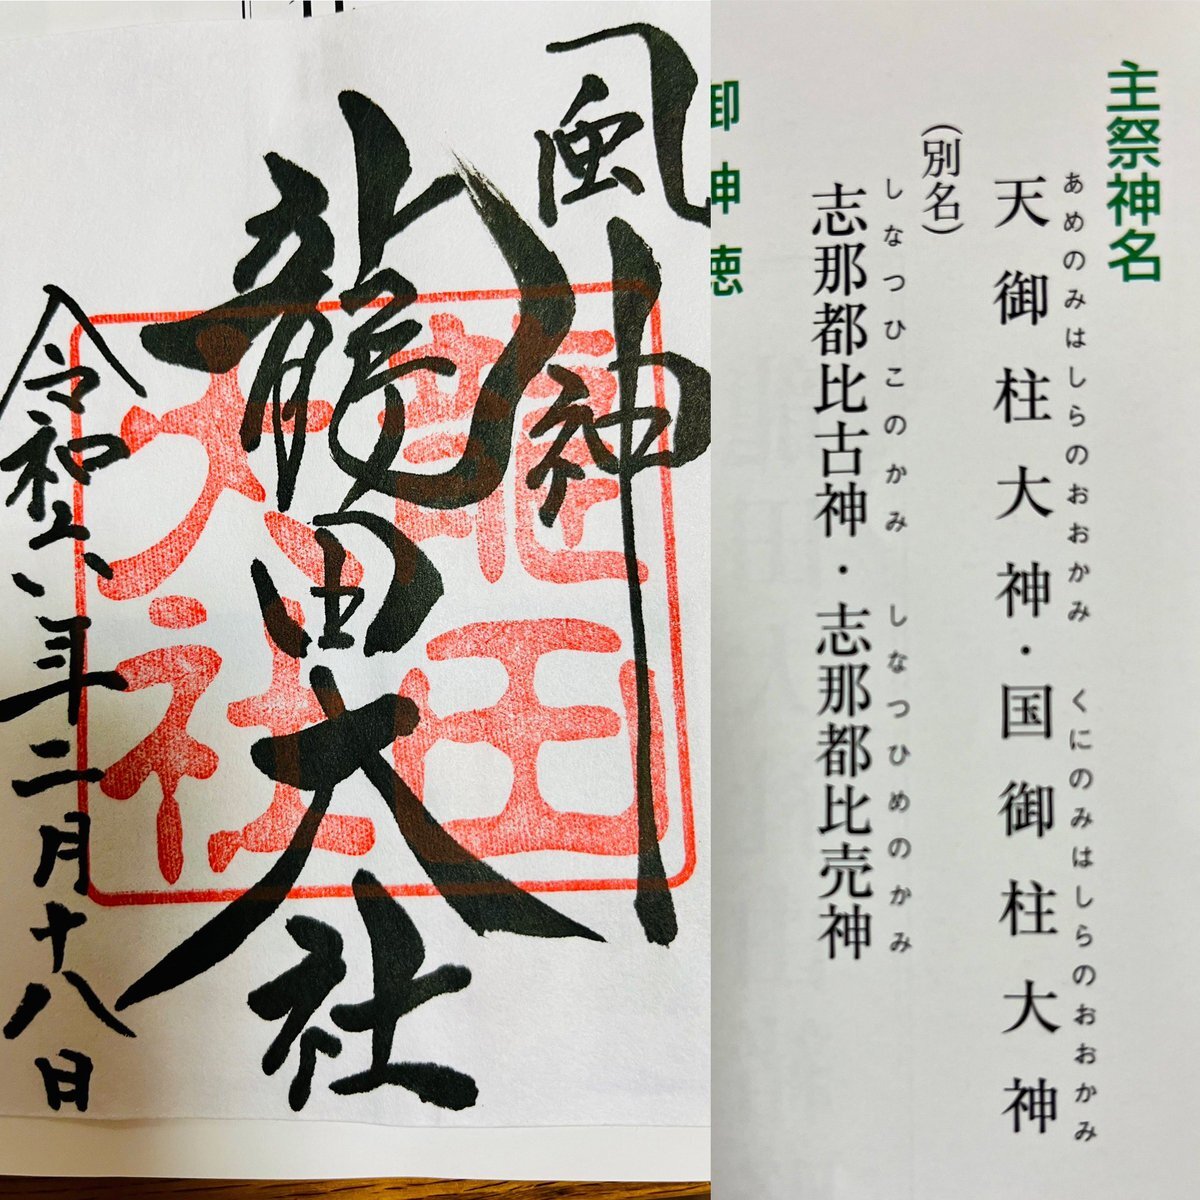 風神
龍田大社
令和六年二月十八日
龍田
大社
主祭神名
あめのみはしらのおおかみ くにのみはしらのおおかみ
天御柱大神・国御柱大神
(別名)
しなつひこのかみ しなつひめのかみ
志那都比古神・志那都比売神
御神徳